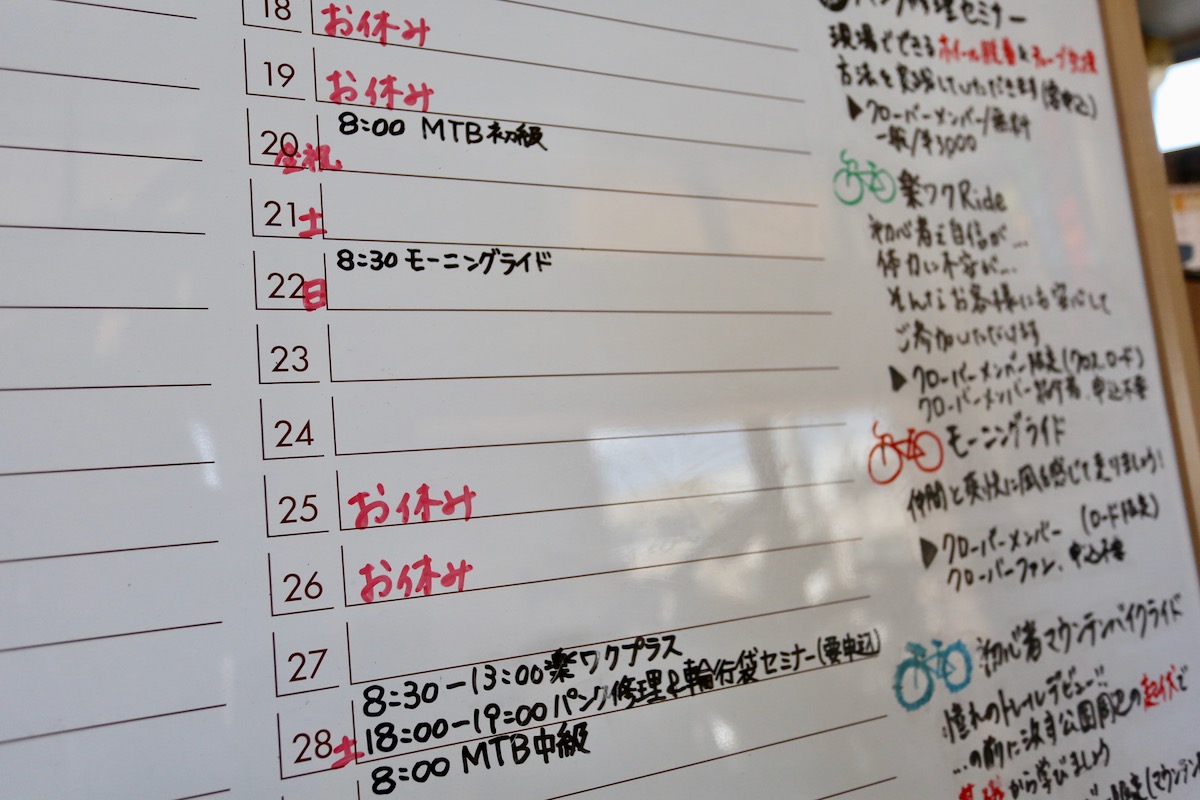 18 お休み
19 お休み
20 金祝 8:00 MTB初級
21 土
22 日 8:30 モーニングライド
23
24
25 お休み
26 お休み
27
28 土 8:30-13:00 楽ワクプラス
18:00-19:00 パンク修理&輪行袋セミナー(要申込)
8:00 MTB中級
パンク修理セミナー
現場でできるホイール脱着&チューブ交換
方法を実践していただきます(要申込)
▶クローバーメンバー/無料
一般/¥3,000
楽ワクRide
初心者で自信が...
体力に不安が...
そんなお客様にも安心して
ご参加いただけます
▶クローバーメンバー限定(クロス、ロード)
クローバーメンバー 申込不要
モーニングライド
仲間と爽快に風を感じて走りましょう!
▶クローバーメンバー (ロード限定)
クローバーファン、申込不要
初心者マウンテンバイクライド
憧れのトレイルデビュー!!
...の前に 公園周辺の
から学びましょう
限定(マウンテン